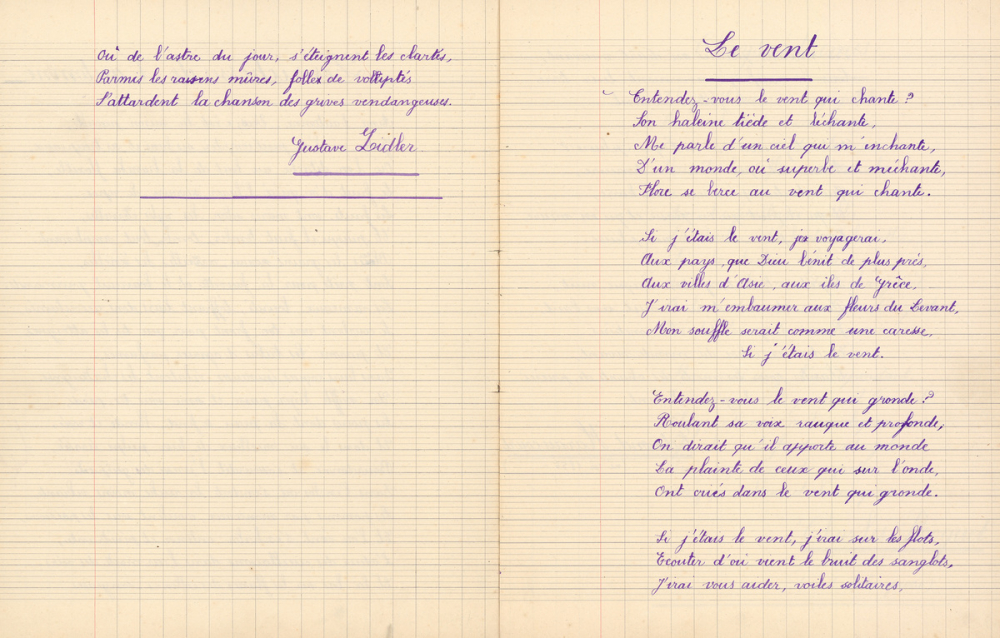 Où de l'astre du jour, s'éteignent les clartés,
Parmis les raisins mûres, folles de voluptés
S'attardent la chanson des grives vendangeuses.
Gustave Zidler
Le vent
Entendez-vous le vent qui chante ?
Son haleine tiède et léchante,
Me parle d'un ciel qui m'enchante,
D'un monde, où superbe et méchante,
Flore se berce au vent qui chante.
Si j'étais le vent, je voyagerai,
Aux pays, que Dieu bénit de plus près,
Aux villes d'Asie, aux îles de Grèce,
J'irai m'embaumer aux fleurs du Levant,
Mon souffle serait comme une caresse,
Si j'étais le vent.
Entendez-vous le vent qui gronde ?
Roulant sa voix rauque et profonde,
On dirait qu'il apporte au monde
La plainte de ceux qui sur l'onde,
Ont criés dans le vent qui gronde.
Si j'étais le vent, j'irai sur les flots,
Ecouter d'où vient le bruit des sanglots,
J'irai vous aider, voiles solitaires,